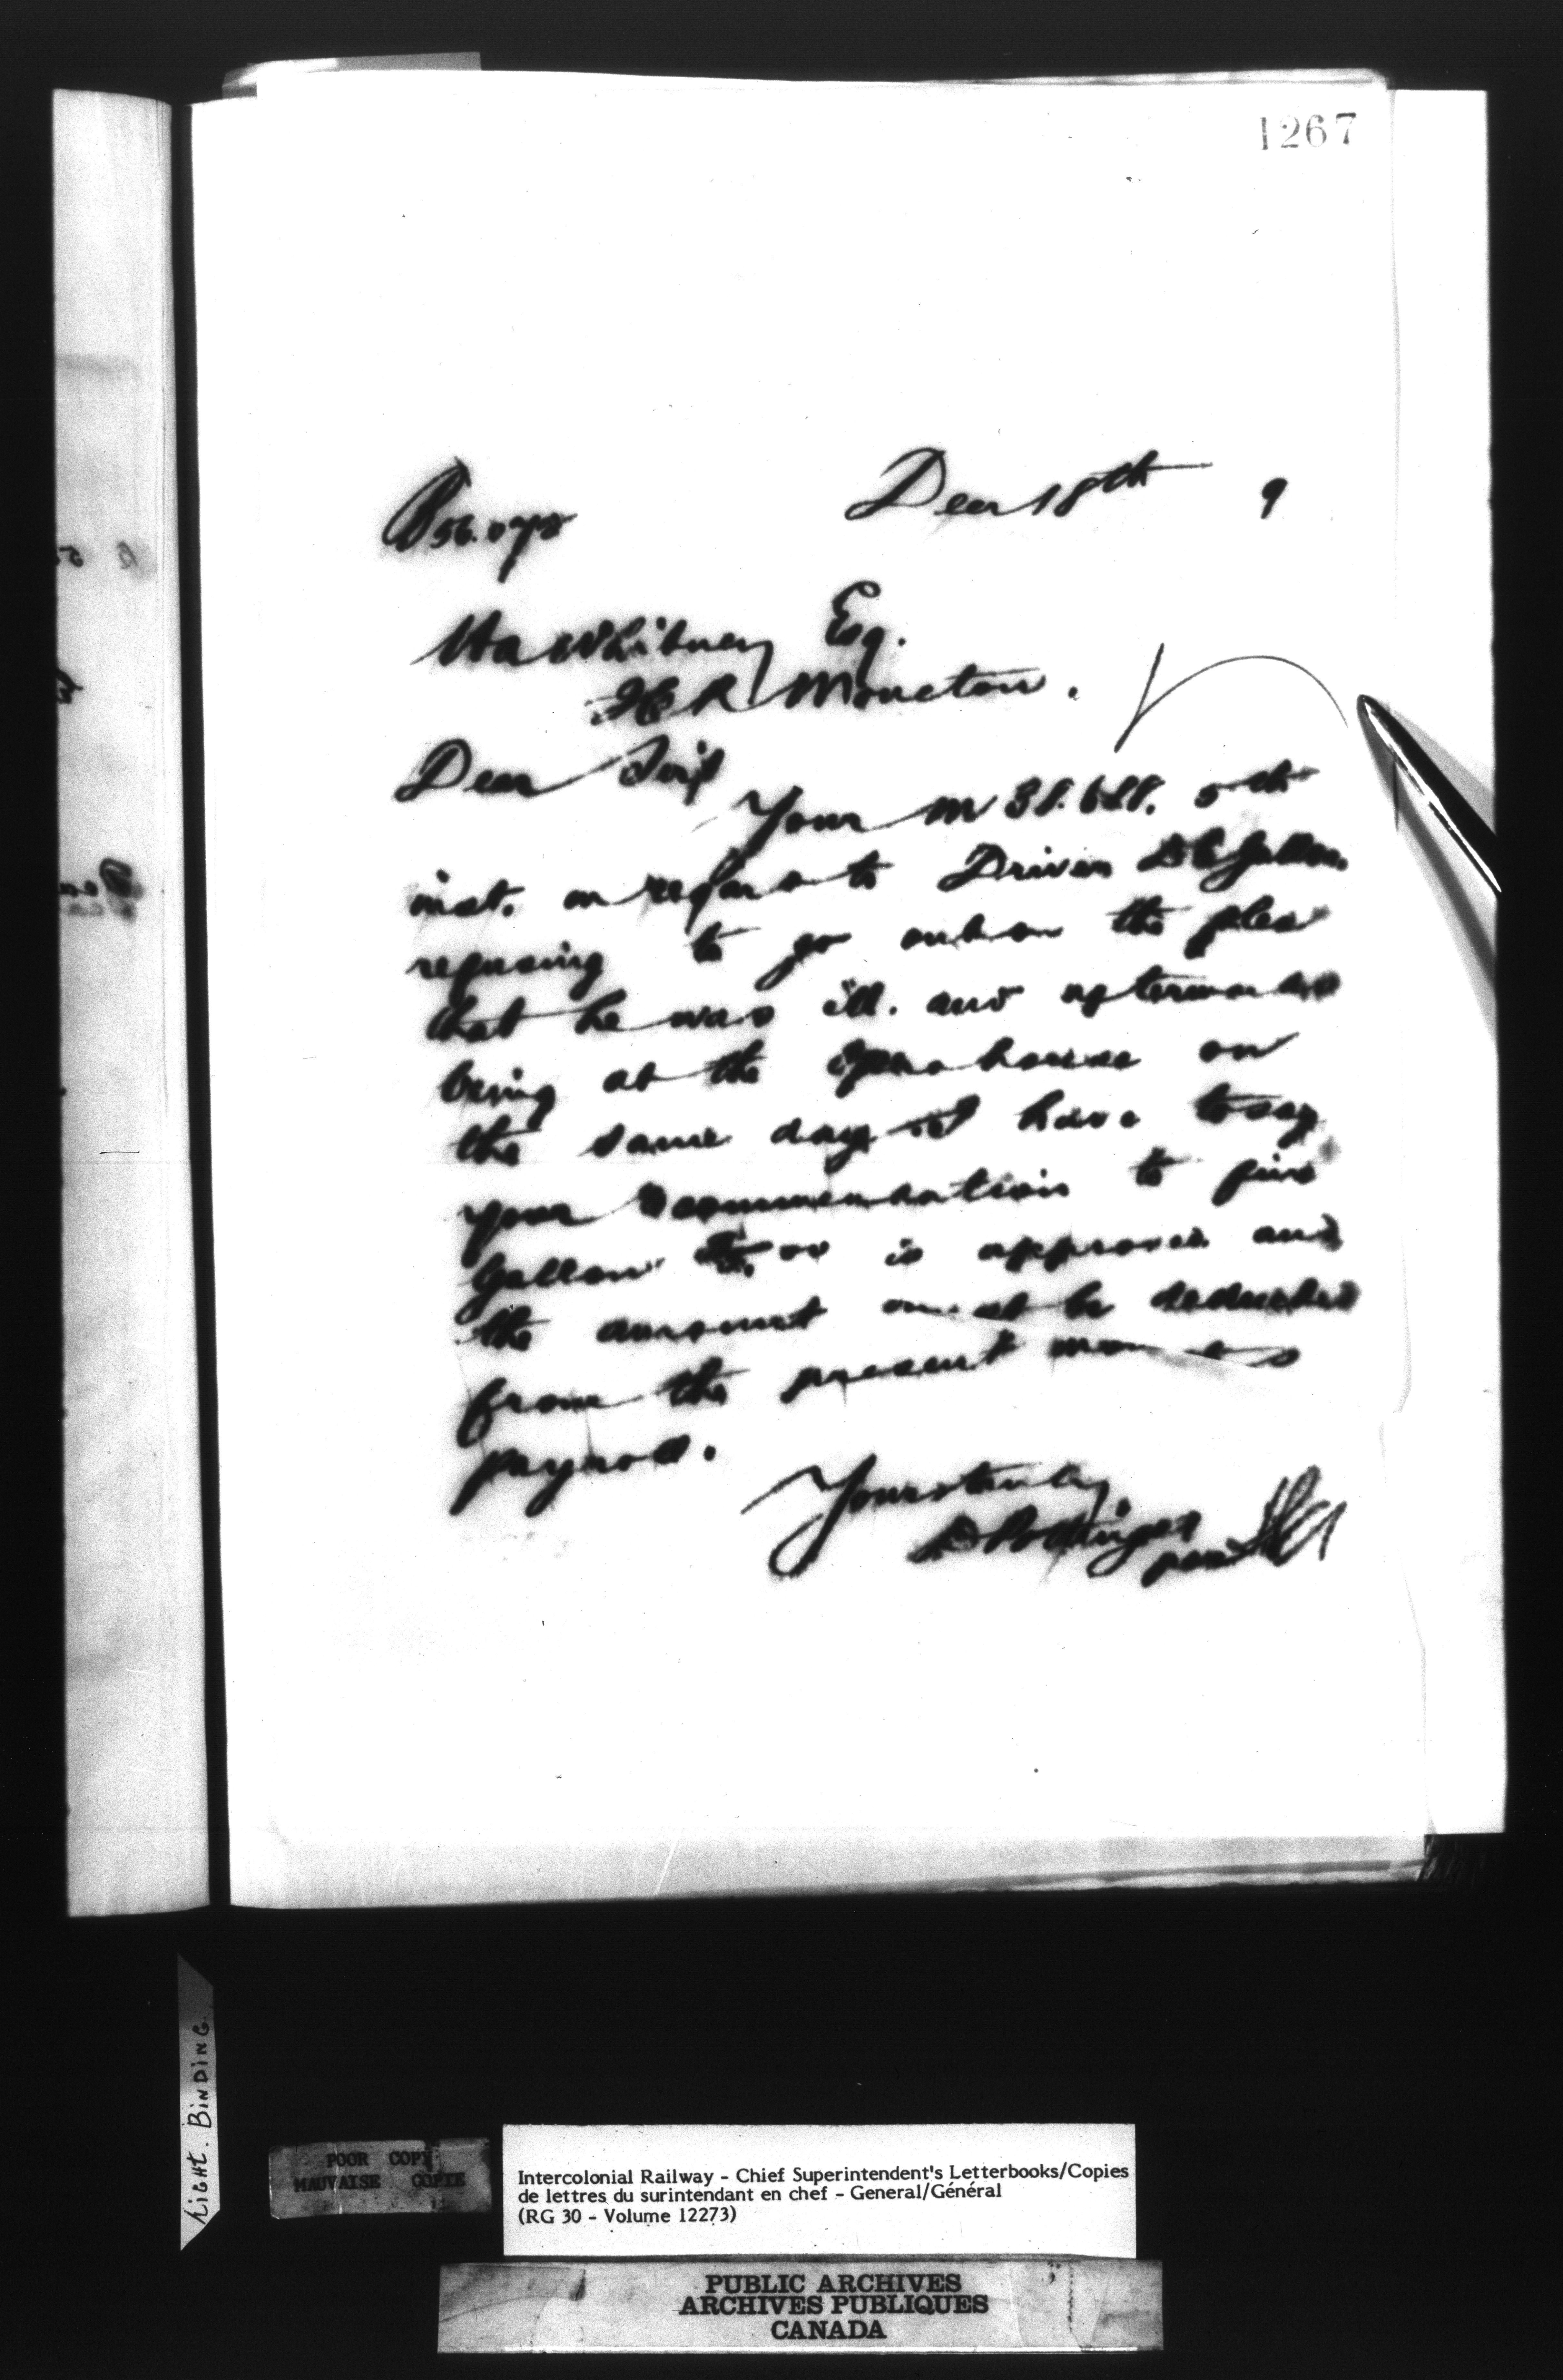 1267
B 56.078 Dec 18th 9
Ha Whitney Esq.
ICR Moncton.
Dear Sir
Your M 38.688. 5th
inst. in regard to Driver Gallon
refusing to go out on the plea
that he was ill. and afterwards
being at the Opera house on
the same day I have to say
your recommendation to fine
Gallon is approved and
the amount must be deducted
from the present months
payroll.
Yours truly
D Pottinger
per
LIGHT. BINDING.
POOR COPY
MAUVAISE COPIE
Intercolonial Railway - Chief Superintendent's Letterbooks/Copies
de lettres du surintendant en chef - General/Général
(RG 30 - Volume 12273)
PUBLIC ARCHIVES
ARCHIVES PUBLIQUES
CANADA